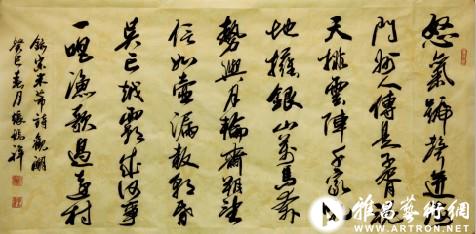 怒氣號聲迸海
門州人傳是子胥魂
天排雲陣千家吼
地擁銀山萬馬奔
勢與月輪齊朔望
信如壺漏報晨昏
吳亡越霸成何事
一唱漁歌過遠村
錄宋米芾詩觀潮
癸巳春月張祥
雅昌藝術網
WWW.ARTRON.NET